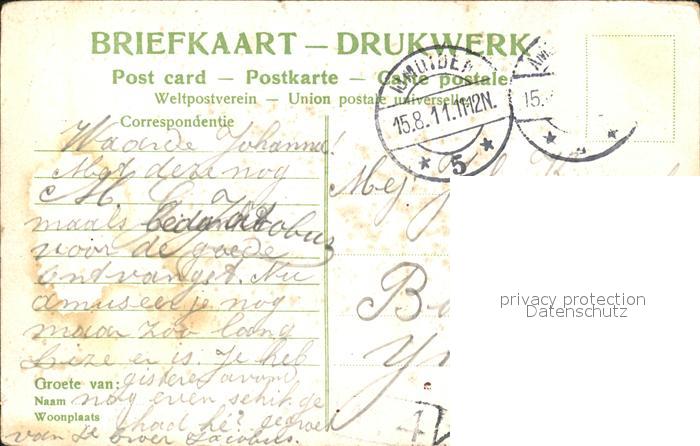 BRIEFKAART — DRUKWERK
Post card — Postkarte — Carte postale
Weltpostverein — Union postale universelle
IJMUIDEN
15.8.11.11-12N.
5
15.
Correspondentie
Waarde Johanna!
Met deze nog
maals bedankt
voor de goede
ontvangst. Nu
amuseer je nog
maar zoo lang
Lize er is. Je heb
Groete van: gisteren avond
Naam nog even schik ge
Woonplaats had hè? gegroet
van Jacobus.
Mej
privacy protection
Datenschutz